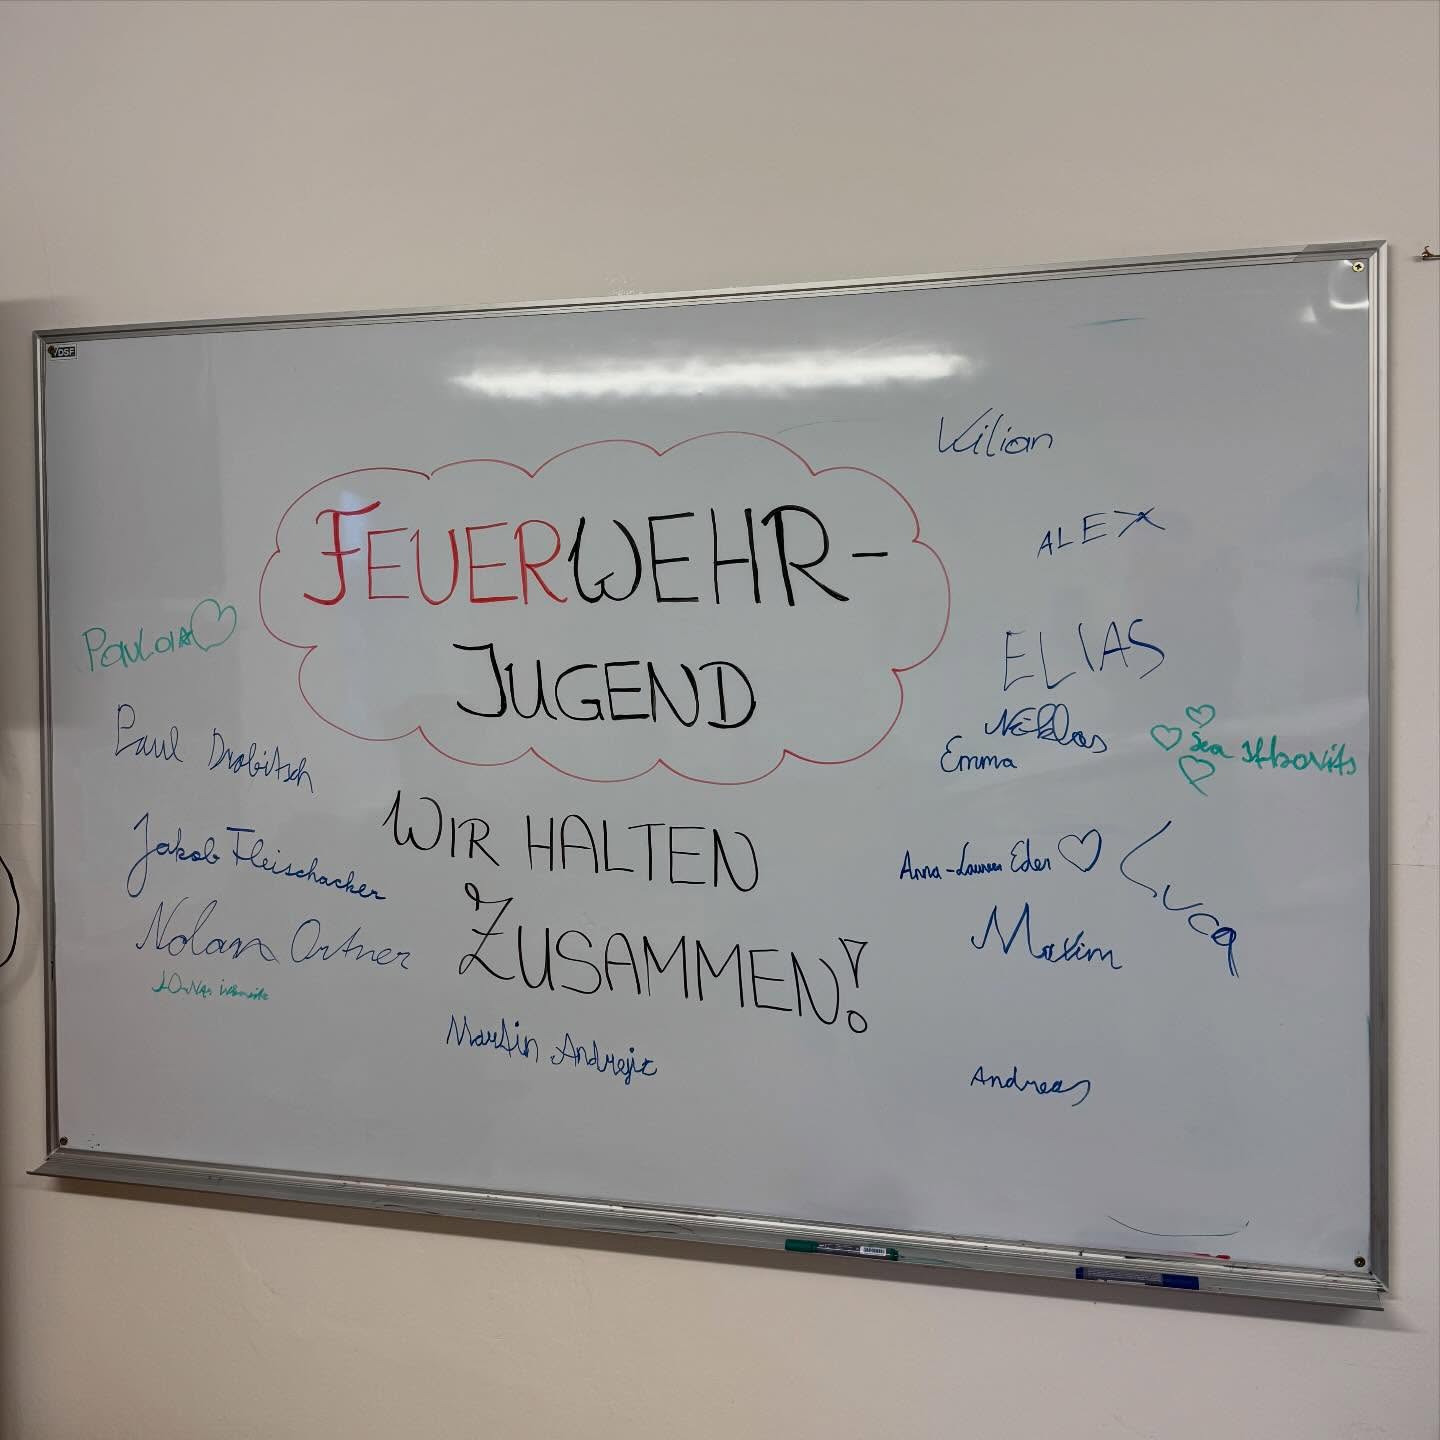 VDSF
FEUERWEHR-
JUGEND
WIR HALTEN
ZUSAMMEN!
Paul Drobitsch
Jakob Fleischacker
Nolan Ortner
Martin Andrejic
Kilian
ALEX
ELIAS
Niklas
Emma
Eder
Luca
Maxim
Andreas